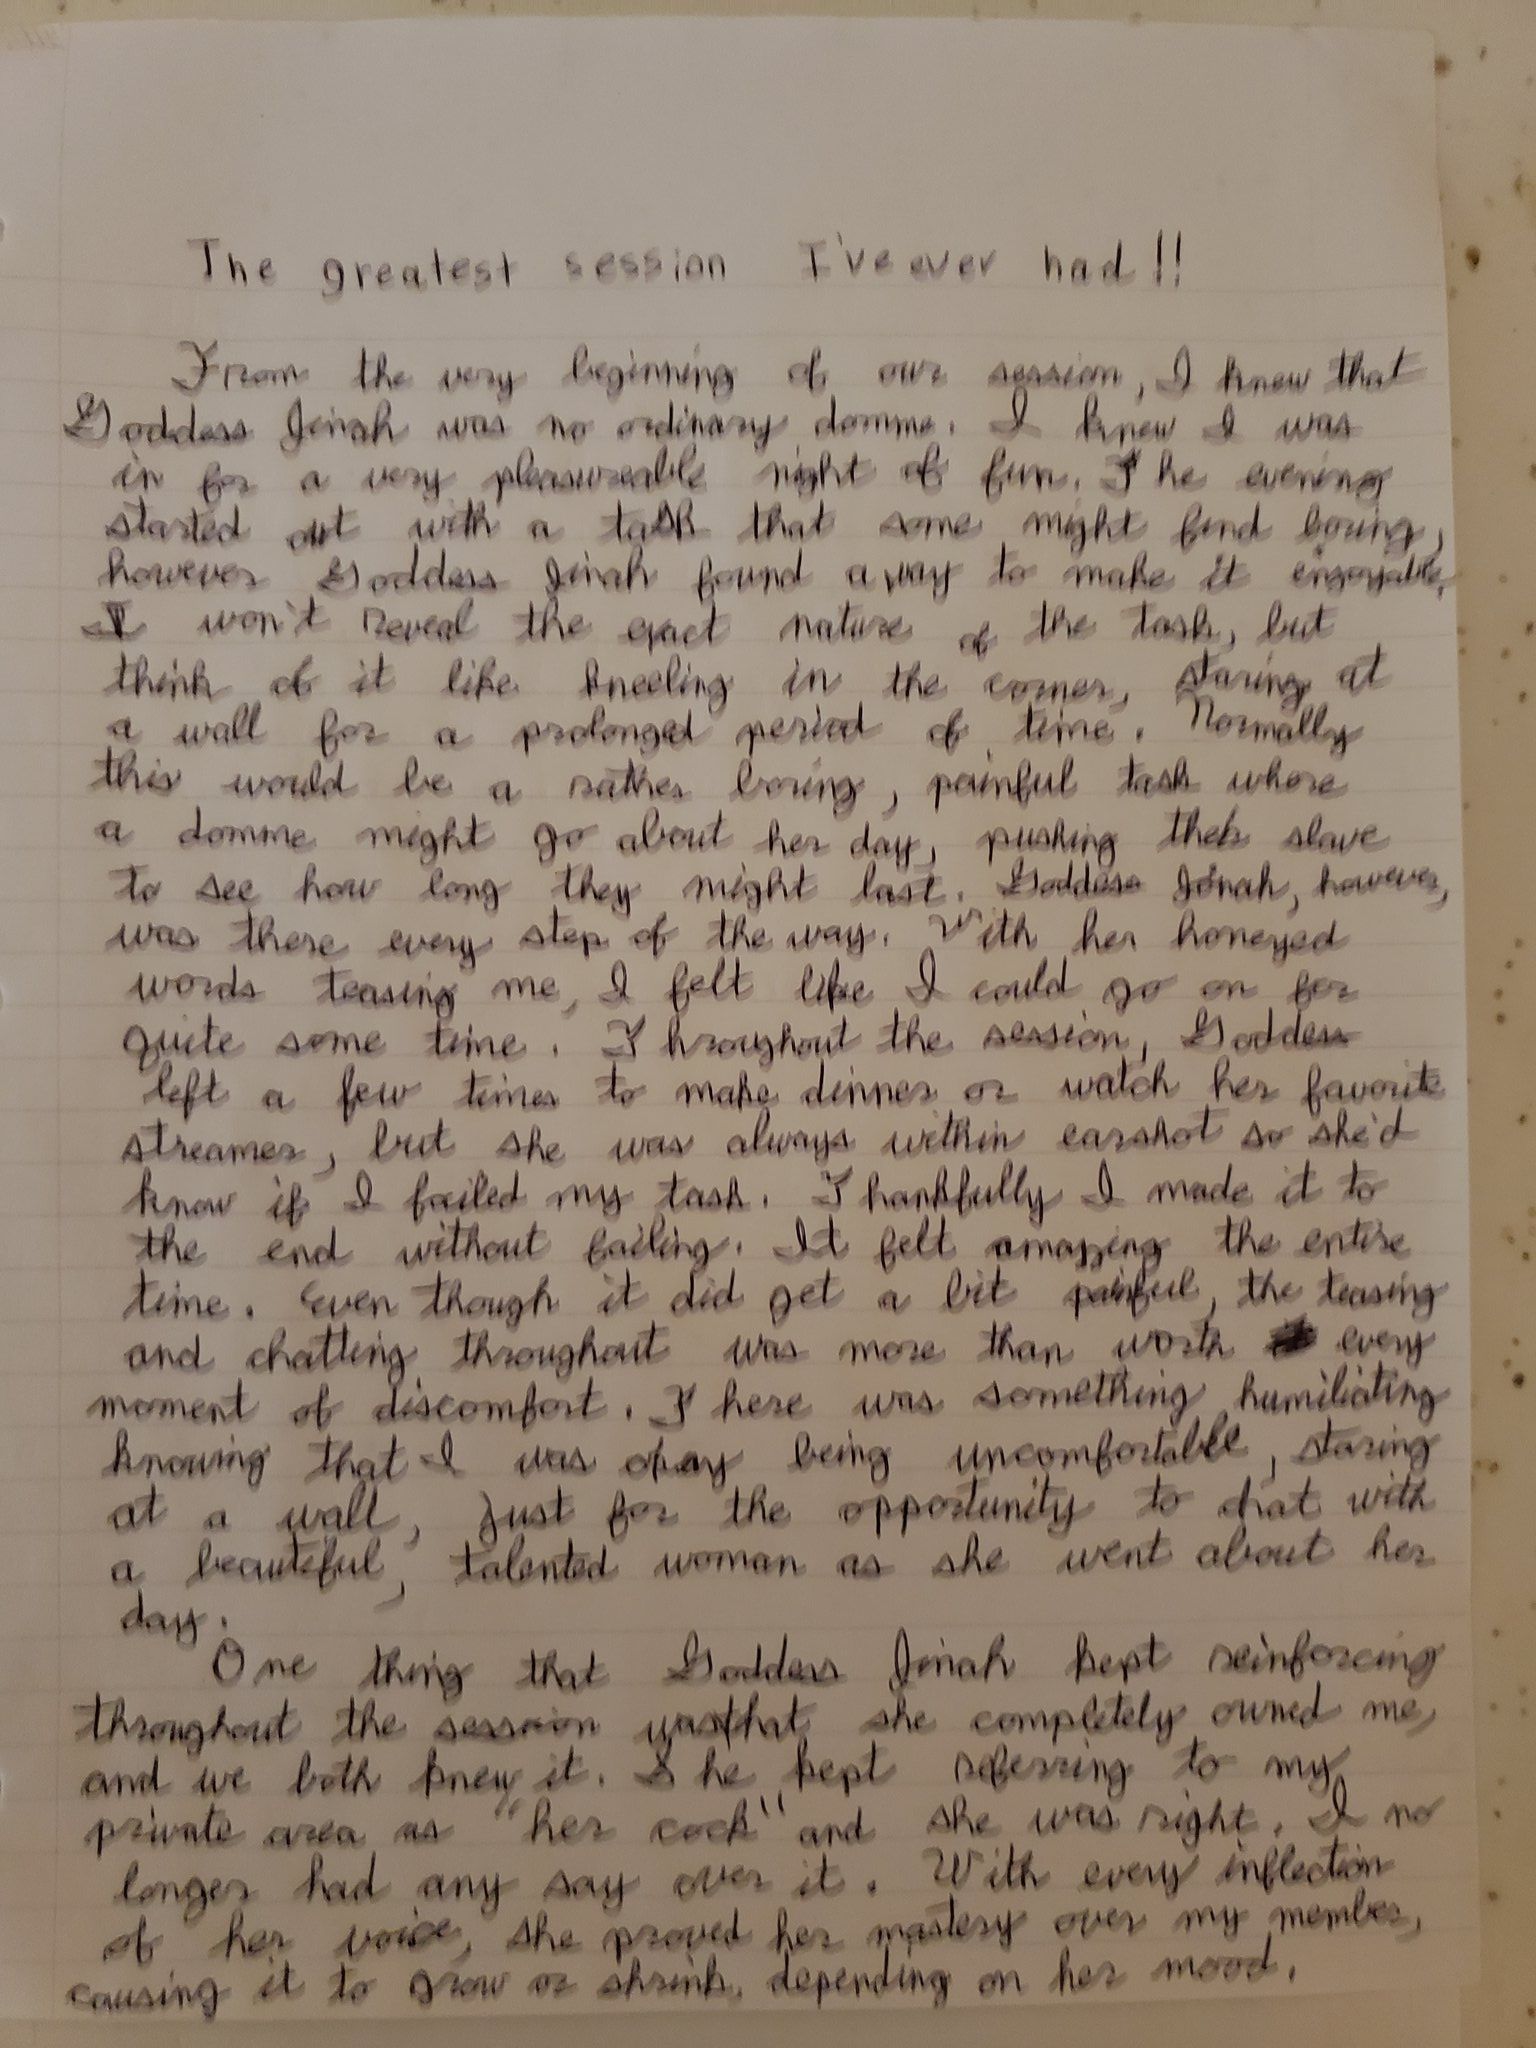 The greatest session I've ever had!!
From the very beginning of our session, I knew that
Goddess Jinah was no ordinary domme. I knew I was
in for a very pleasureable night of fun. The evening
started out with a task that some might find boring,
however Goddess Jinah found a way to make it enjoyable.
I won't reveal the exact nature of the task, but
think of it like kneeling in the corner, staring at
a wall for a prolonged period of time. Normally
this would be a rather boring, painful task where
a domme might go about her day, pushing their slave
to see how long they might last. Goddess Jinah, however,
was there every step of the way. With her honeyed
words teasing me, I felt like I could go on for
quite some time. Throughout the session, Goddess
left a few times to make dinner or watch her favorite
streamer, but she was always within earshot so she'd
know if I failed my task. Thankfully I made it to
the end without failing. It felt amazing the entire
time. Even though it did get a bit painful, the teasing
and chatting throughout was more than worth every
moment of discomfort. There was something humiliating
knowing that I was okay being uncomfortable, staring
at a wall, just for the opportunity to chat with
a beautiful, talented woman as she went about her
day.
One thing that Goddess Jinah kept reinforcing
throughout the session was that she completely owned me,
and we both knew it. She kept referring to my
private area as "her cock" and she was right. I no
longer had any say over it. With every inflection
of her voice, she proved her mastery over my member,
causing it to grow or shrink, depending on her mood.